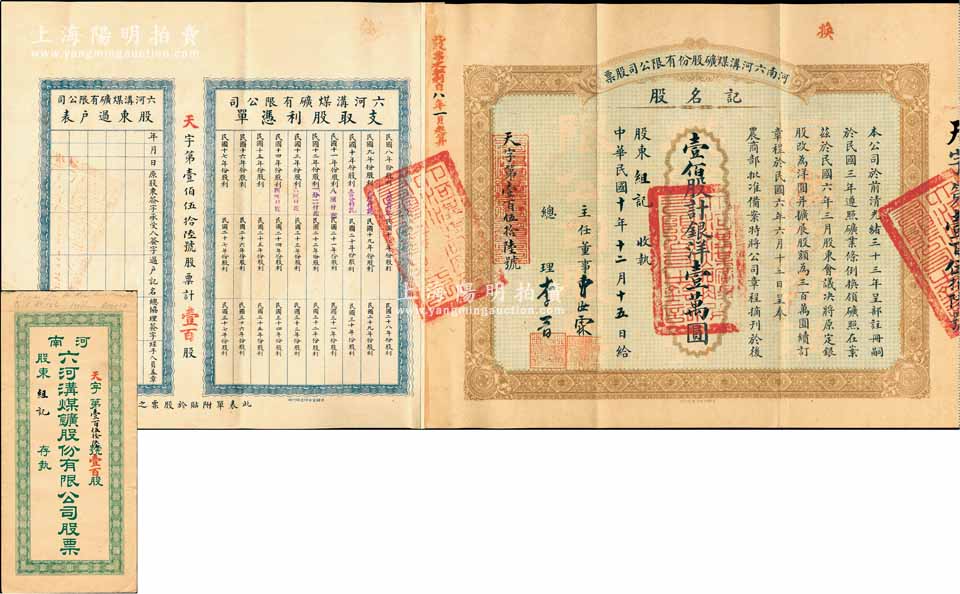 上海陽明拍賣
www.yangmingauction.com
換
河南六河溝煤礦股份有限公司股票
記名股
本公司於前清光緒三十三年呈部註冊嗣
於民國三年遵照礦業條例換領礦照在案
茲於民國六年三月股東會議決將原定銀
股改為洋圓并擴展股額為三百萬圓續訂
章程於民國六年六月十三日呈奉
農商部批准備案特將公司章程摘刊於後
壹佰股計銀洋壹萬圓
股東 組記 收執
中華民國十年十二月十五日給
主任董事 曹汝霖
總理 李晋
天字第壹百伍拾陸號
六河溝煤礦有限公司
支取股利憑單
民國八年份股利
民國九年份股利
民國十年份股利
民國十一年份股利
民國十二年份股利
民國十三年份股利
民國十四年份股利
民國十五年份股利
民國十六年份股利
民國十七年份股利
民國十八年份股利
民國十九年份股利
民國二十年份股利
民國二十一年份股利
民國二十二年份股利
民國二十三年份股利
民國二十四年份股利
民國二十五年份股利
民國二十六年份股利
民國二十七年份股利
民國二十八年份股利
民國二十九年份股利
民國三十年份股利
民國三十一年份股利
民國三十二年份股利
民國三十三年份股利
民國三十四年份股利
民國三十五年份股利
民國三十六年份股利
民國三十七年份股利
天字第壹佰伍拾陸號股票計壹百股
六河溝煤礦有限公司
股東過戶表
年月日 原股東簽字 承受人簽字 過戶記名 總協理簽字 經手人員蓋章
此表單附貼於股票之
河南
六河溝煤鑛股份有限公司股票
天字第壹百伍拾陸號壹百股
股東 組記 存執
上海陽明拍賣
www.yangmingauction.com